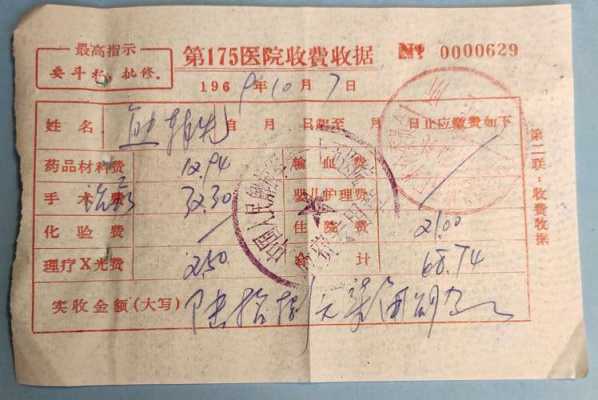 最高指示
要斗私,批修。
第175医院收費收据
№ 0000629
1969年10月7日
姓名 自 月 日起至 月 日止应繳費如下
药品材料費 12.94 輸血費
手术費 32.30 婴儿护理費
化验費 住院費 21.00
理疗X光費 2.50 合計 68.74
实收金额(大写) 陆拾捌元柒角肆分
第二联:收費收据
中国人民解放军